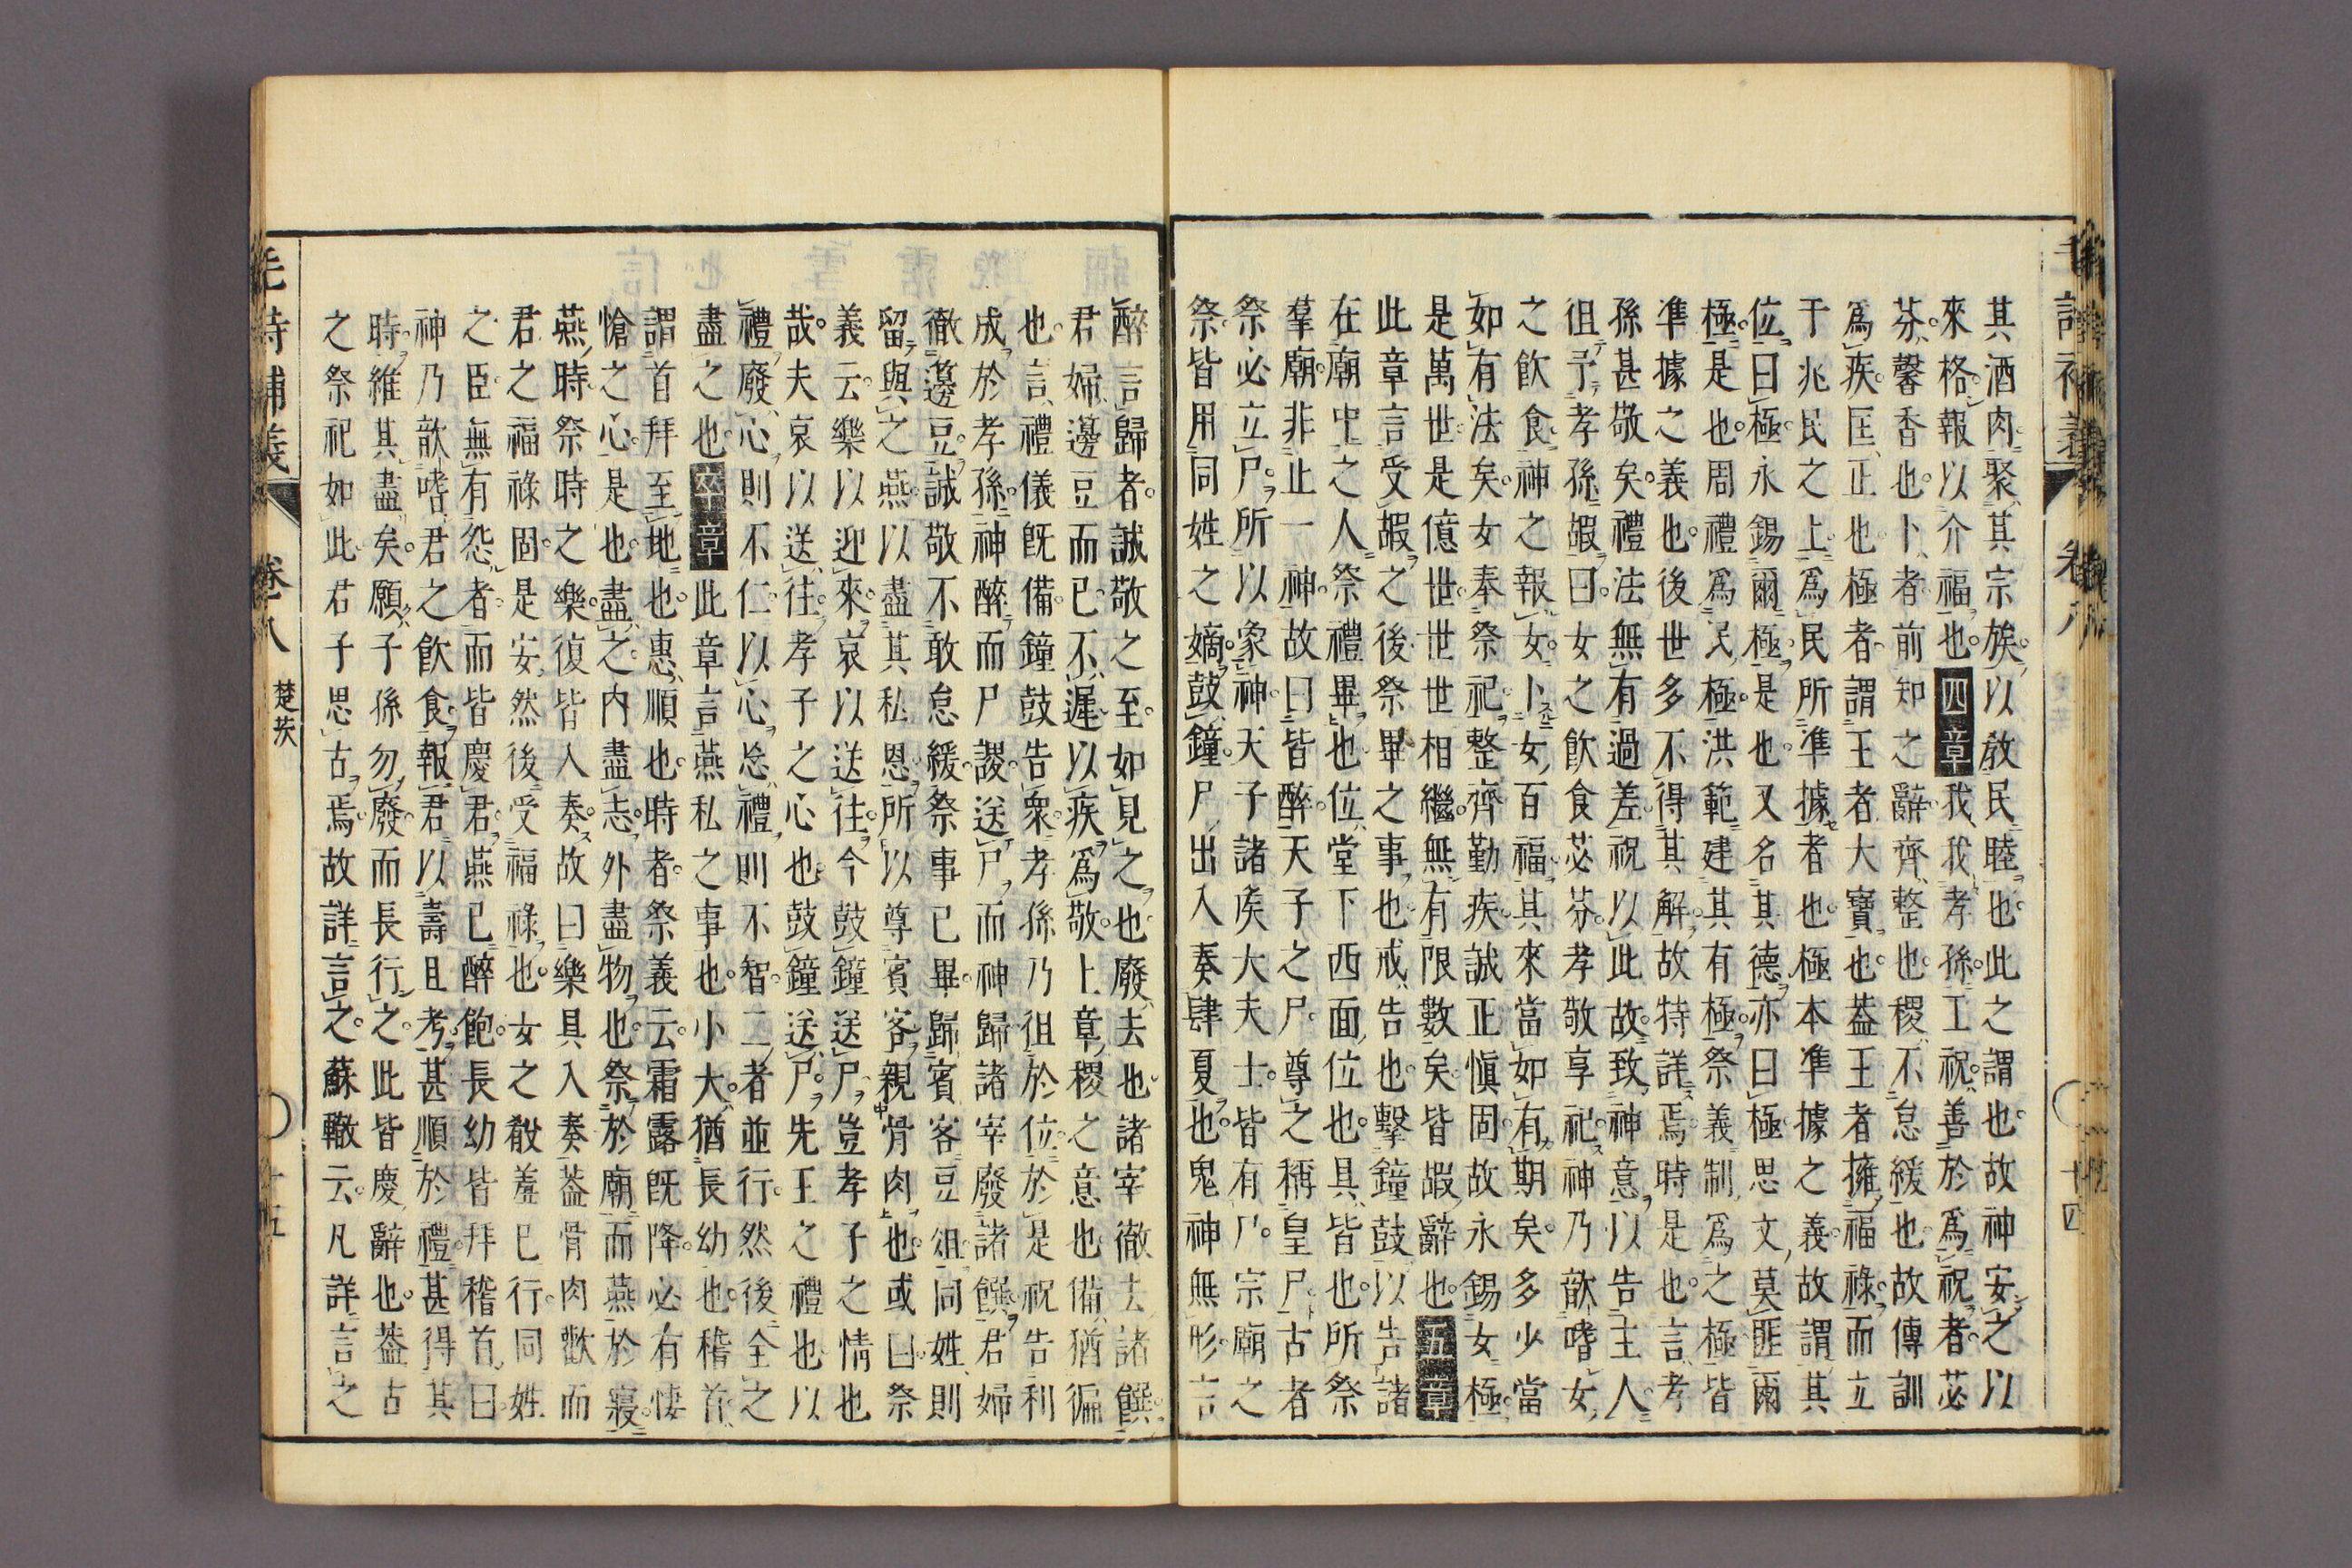 其酒肉聚其宗族以敎民睦也此之謂也故神安之以
來格報以介福也四章我我孝孫工祝善於爲祝者苾
芬馨香也卜者前知之辭齊整也稷不怠緩也故傳訓
爲疾匡正也極者謂王者大寶也葢王者擁福祿而立
于兆民之上爲民所準據者也極本準據之義故謂其
位曰極永錫爾極是也又名其德亦曰極思文莫匪爾
極是也周禮爲民極洪範建其有極祭義制爲之極皆
準據之義也後世多不得其解故特詳焉時是也言考
孫甚敬矣禮法無有過差祝以此故致神意以告主人
徂予孝孫嘏曰女之飮食苾芬孝敬享祀神乃歆嗜女
之飮食神之報女卜女百福其來當如有期矣多少當
如有法矣女奉祭祀整齊勤疾誠正愼固故永錫女極
是萬世是億世世世相繼無有限數矣皆嘏辭也五章
此章言受嘏之後祭畢之事也戒告也擊鐘鼓以告諸
在廟中之人祭禮畢也位堂下西面位也具皆也所祭
羣廟非止一神故曰皆醉天子之尸尊之稱皇尸古者
祭必立尸所以象神天子諸矦大夫士皆有尸宗廟之
祭皆用同姓之嫡鼓鐘尸出入奏肆夏也鬼神無形言
毛詩補義 卷八 十四
醉言歸者誠敬之至如見之也廢去也諸宰徹去諸饌
君婦籩豆而已不遲以疾爲敬上章稷之意也備猶徧
也言禮儀既備鐘鼓告衆孝孫乃徂於位於是祝告利
成於孝孫神醉而尸謖送尸而神歸諸宰廢諸饌君婦
徹籩豆誠敬不敢怠緩祭事已畢歸賓客豆俎同姓則
留與之燕以盡其私恩所以尊賓客親骨肉也或曰祭
義云樂以迎來哀以送往今鼓鐘送尸豈孝子之情也
哉夫哀以送往孝子之心也鼓鐘送尸先王之禮也以
禮廢心則不仁以心忘禮則不智二者並行然後全之
盡之也卒章此章言燕私之事也小大猶長幼也稽首
謂首拜至地也惠順也時者祭義云霜露既降必有悽
愴之心是也盡之內盡志外盡物也祭於廟而燕於寢
燕時祭時之樂復皆入奏故曰樂具入奏葢骨肉歡而
君之福祿固是安然後受福祿也女之殽羞已行同姓
之臣無有怨者而皆慶君燕已醉飽長幼皆拜稽首曰
神乃歆嗜君之飮食報君以壽且考甚順於禮甚得其
時維其盡矣願子孫勿廢而長行之此皆慶辭也葢古
之祭祀如此君子思古焉故詳言之蘇轍云凡詳言之
毛詩補義 卷八 楚茨 十五